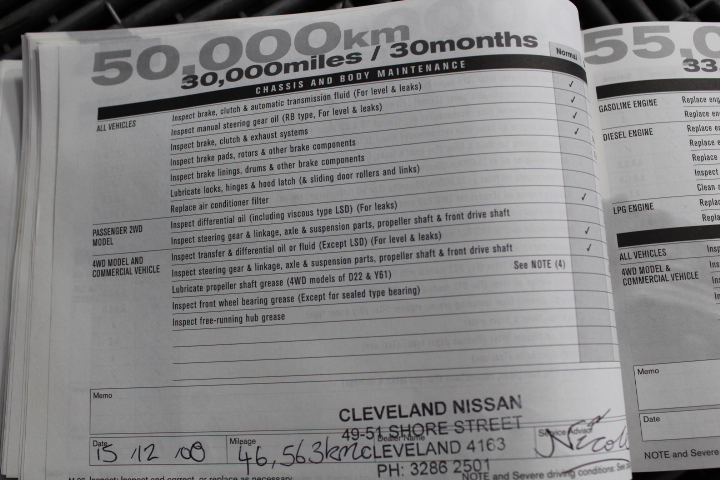 50,000km
30,000miles / 30months
CHASSIS AND BODY MAINTENANCE
Normal
ALL VEHICLES
Inspect brake, clutch & automatic transmission fluid (For level & leaks) ✓
Inspect manual steering gear oil (RB type, For level & leaks) ✓
Inspect brake, clutch & exhaust systems ✓
Inspect brake pads, rotors & other brake components ✓
Inspect brake linings, drums & other brake components
Lubricate locks, hinges & hood latch (& sliding door rollers and links)
Replace air conditioner filter
PASSENGER 2WD MODEL
Inspect differential oil (including viscous type LSD) (For leaks) ✓
Inspect steering gear & linkage, axle & suspension parts, propeller shaft & front drive shaft
4WD MODEL AND COMMERCIAL VEHICLE
Inspect transfer & differential oil or fluid (Except LSD) (For level & leaks) ✓
Inspect steering gear & linkage, axle & suspension parts, propeller shaft & front drive shaft ✓
Lubricate propeller shaft grease (4WD models of D22 & Y61) See NOTE (4)
Inspect front wheel bearing grease (Except for sealed type bearing)
Inspect free-running hub grease
Memo
CLEVELAND NISSAN
49-51 SHORE STREET
CLEVELAND 4163
PH: 3286 2501
Date
15 /12 /08
Mileage
46,563km
Dealer Name
Service Advisor
NOTE and Severe driving conditions.
55,0
33
GASOLINE ENGINE
Replace eng
Replace en
DIESEL ENGINE
Replace e
Replace e
Replace
Inspect
Clean
LPG ENGINE
Replac
Repla
ALL VEHICLES
Ins
4WD MODEL & COMMERCIAL VEHICLE
Ins
Memo
Date
NOTE and